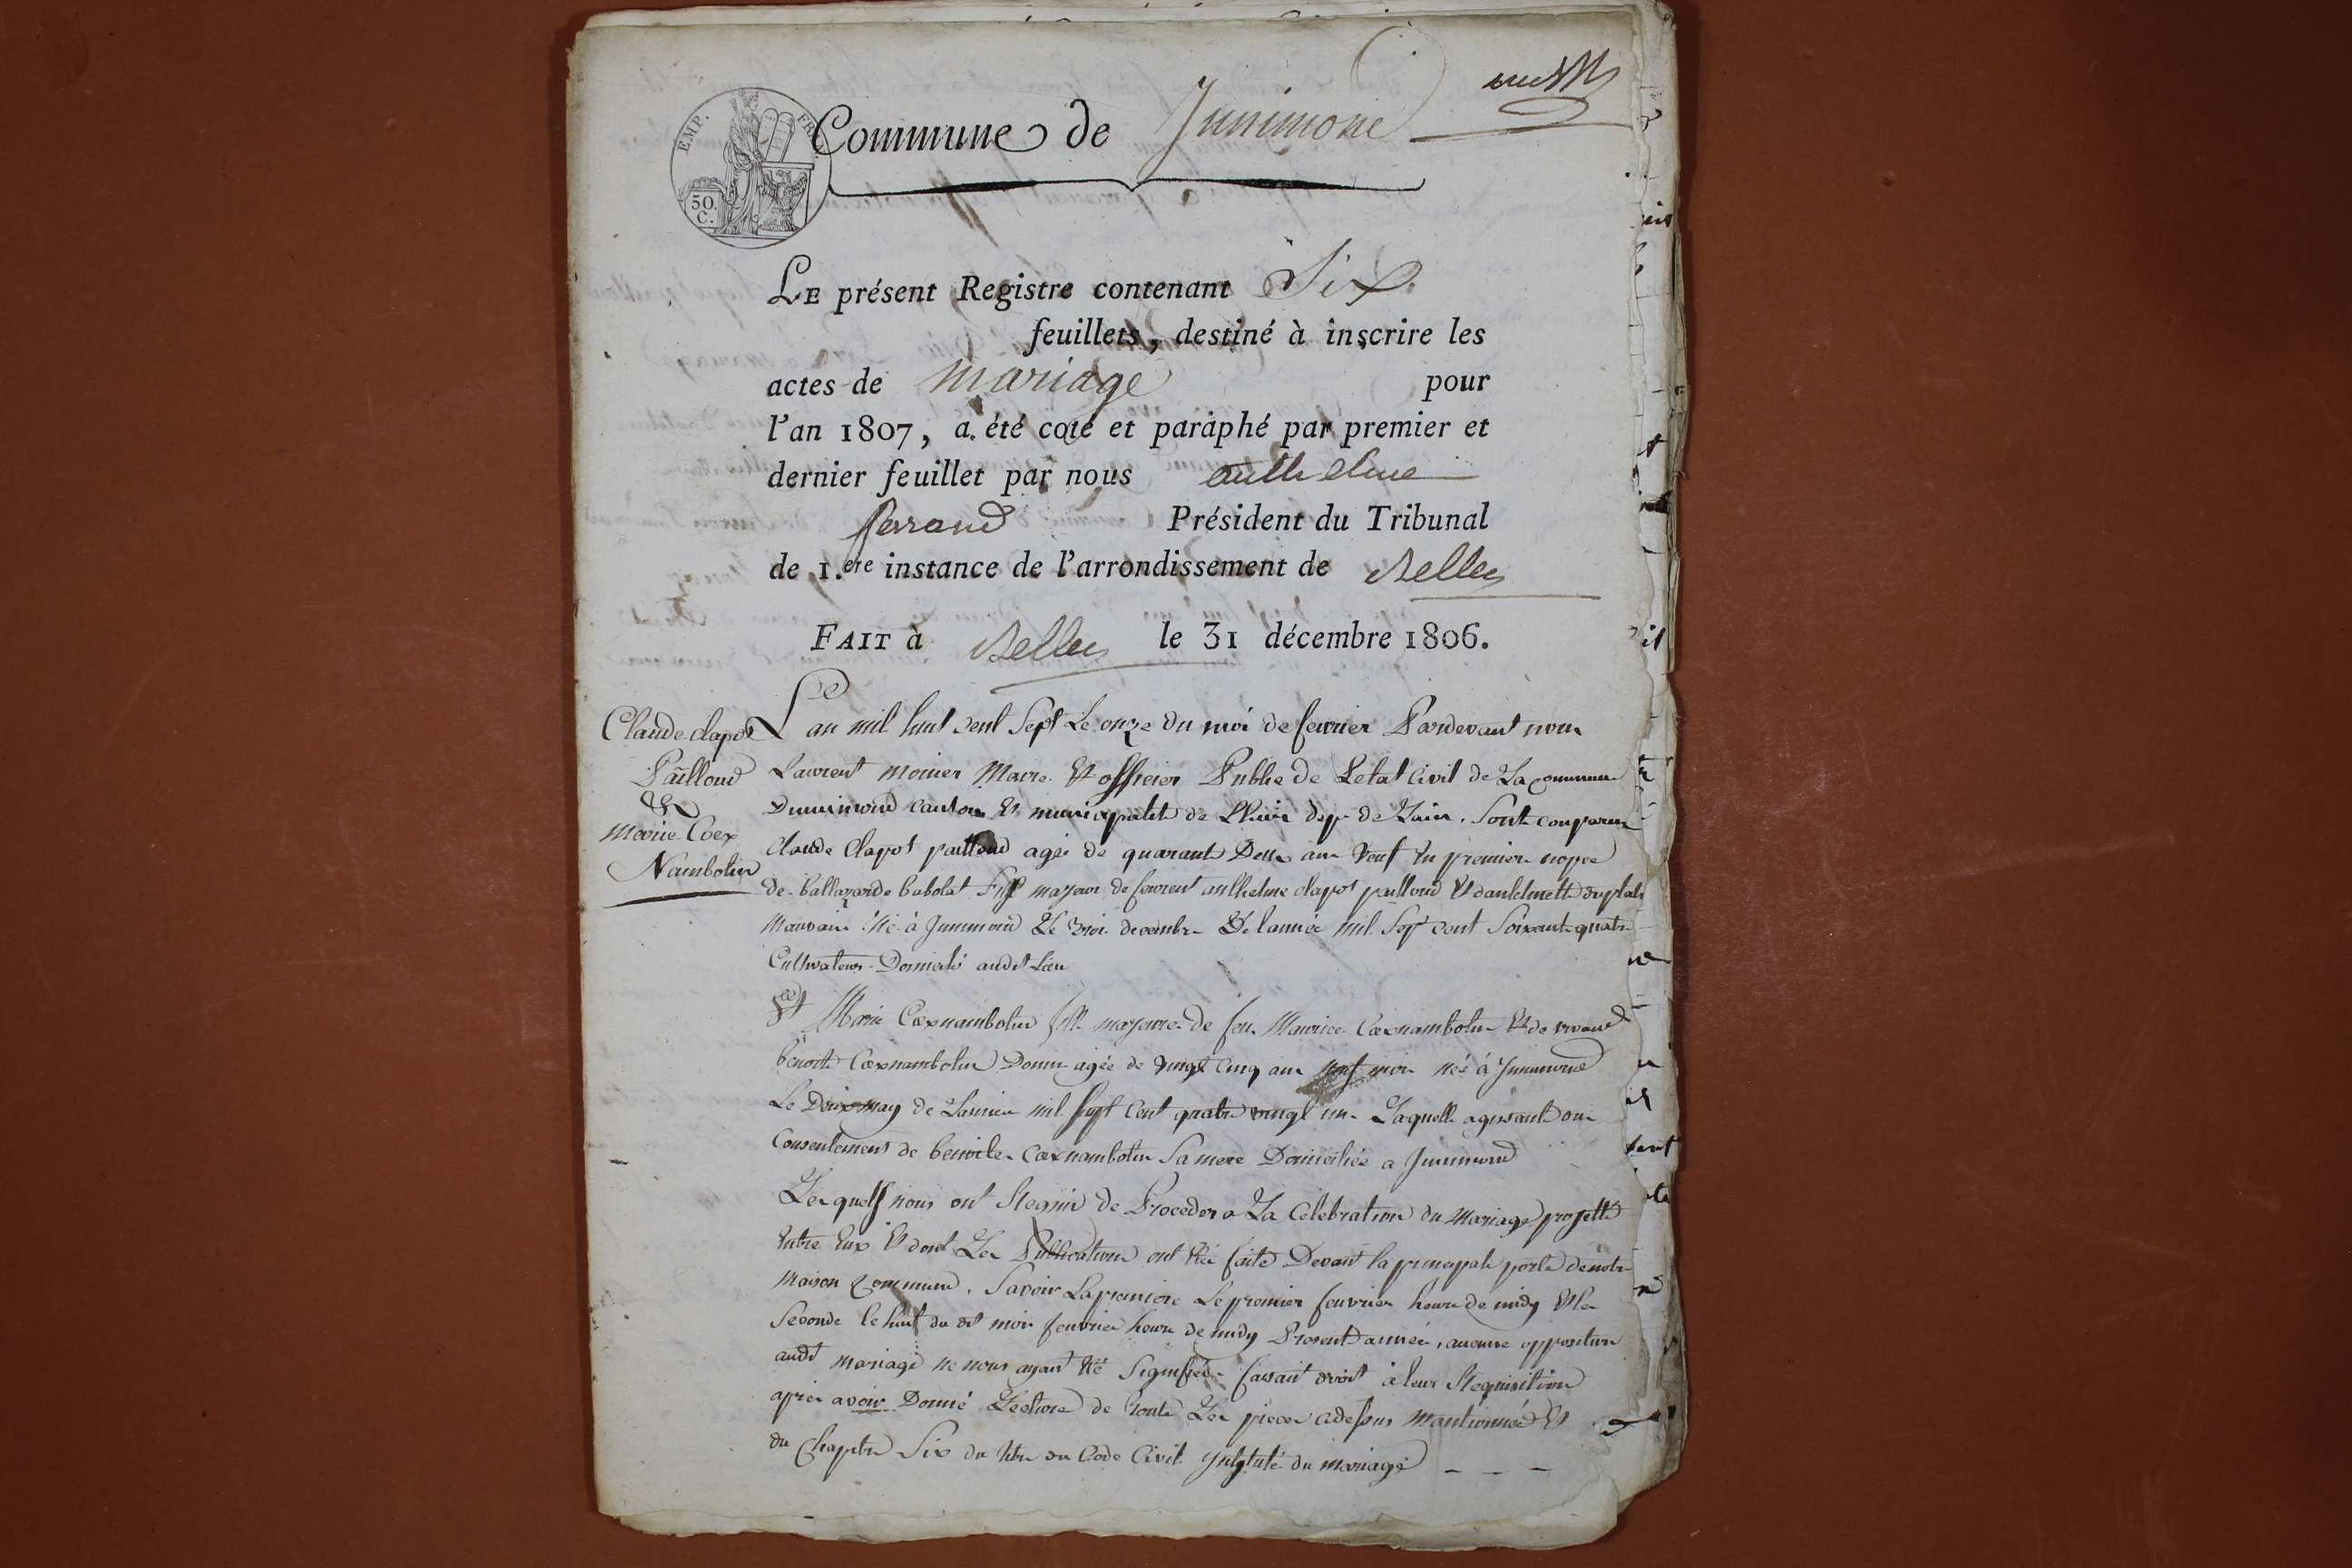 EMP. FR.
50. C.
Commune de Jnnimone
LE présent Registre contenant Six
feuillets, destiné à inscrire les
actes de mariage pour
l'an 1807, a été coté et paraphé par premier et
dernier feuillet par nous anthelme
ferrand Président du Tribunal
de 1.ere instance de l'arrondissement de Belley
FAIT à Belley le 31 décembre 1806.
Claude clapot
Pailloud
&
Marie Coex
Nambotin
Lan mil huit cent Sept Le onze du moi de fevrier Pardevant nous
Laurent moiner Maire Et officier Public de Letat Civil de La commune
canton Et municipalité de Lhuis dep. de Lain. Sont comparu
claude Clapot pailloud agé de quarante Deux an Veuf En premier nopce
de ballazarde babolat Fils majeur de anthelme clapot pailloud Et danthelmette duplat
Mauvais Né à Jnnimond Le decembre De lannée mil Sept cent Soixante quatre
Cultivateur Domicilié audit Lieu
Et Marie Coexnambotin fille majeure de feu Maurice Coexnambotin Et de vivante
benoite Coexnambotin agée de vingt cinq an neuf moi née à Jnnimond
Le Deux may de Lannée mil Sept Cent quatre vingt un Laquelle agissante du
Consentement de benoite Coexnambotin Sa mere Domiciliée a Jnnimond
Lesquels nous ont Requis de Proceder a La Celebration du Mariage projetté
Entre Eux Et dont Les Publications ont Eté faite Devant la principale porte de notre
maison Commune. Savoir La premiere Le premier feuvrier heure de midy Et la
Seconde le huit du dit moi feuvrier heure de midy Present année, aucune opposition
audit mariage ne nous ayant Eté Signifiée faisant droit à leur Requisition
après avoir Donné Lecture de toute Les pieces cidessus Mantionnée Et
du Chapitre Six du titre du Code Civil Jntitulé du mariage - - -